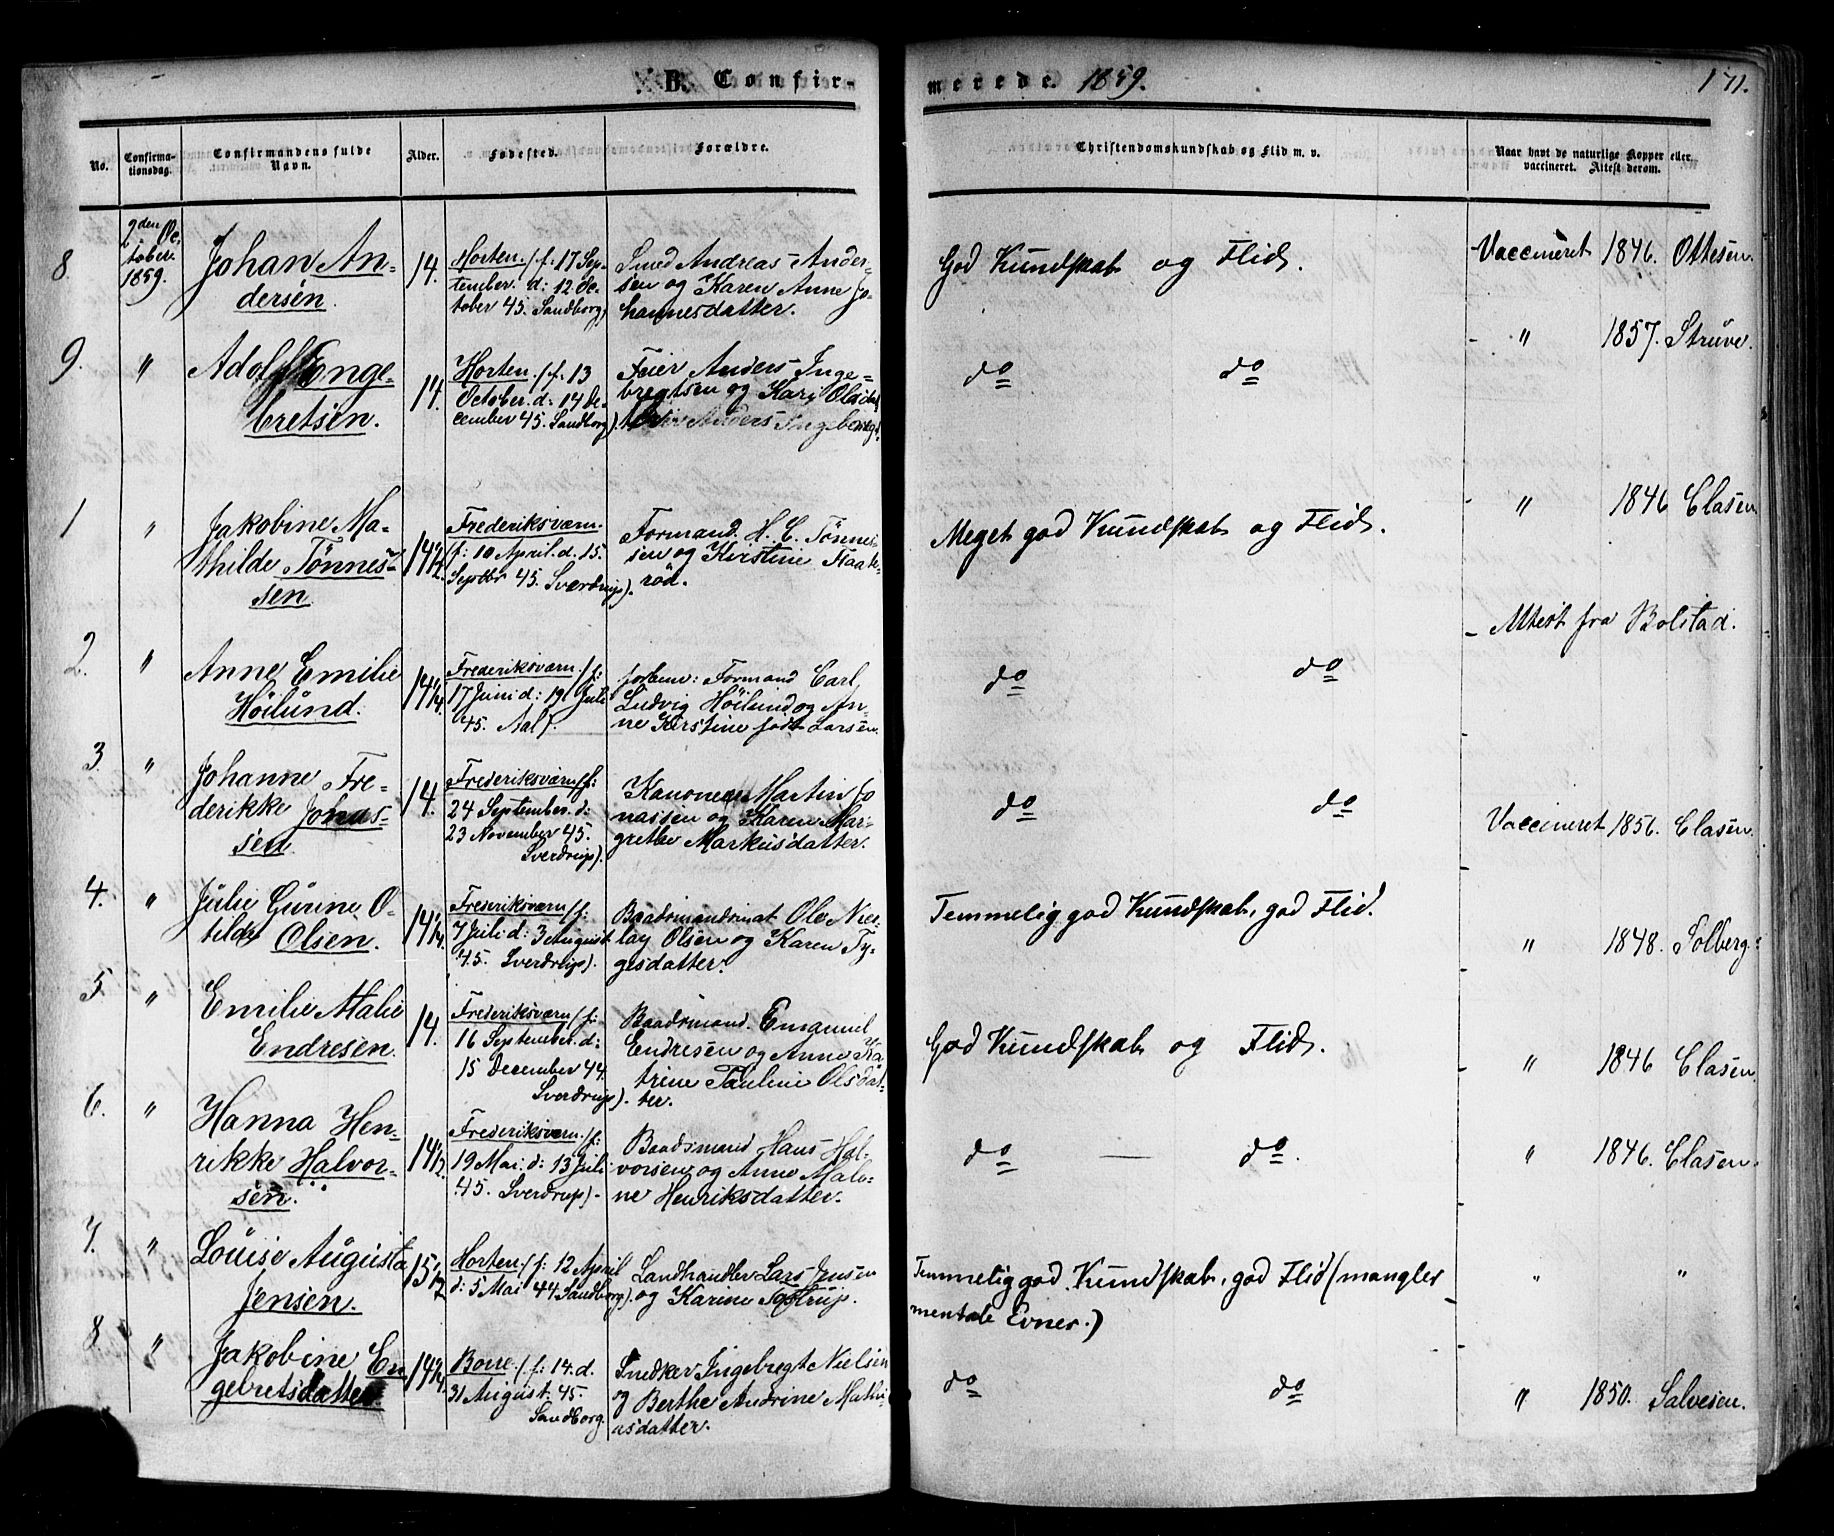 B. Confir-
merede. 1859.
171.
No.
Confirma-
tionsdag.
Confirmandens fulde
Navn.
Alder.
Fødested.
Forældre.
Christendomskundskab og Flid m. v.
Naar havt de naturlige Kopper eller
vaccineret. Attest derom.
8.
2den Oc-
tober.
1859.
Johan An-
dersen.
14.
Horten. (f. 17 Sep-
tember. d: 12 Oc-
tober 45. Sandborg)
Smed Andreas Ander-
sen og Karen Anne Jo-
hannesdatter.
God Kundskab og Flid.
Vaccineret 1846. Ottesen.
9.
"
Adolf Enge-
bretsen.
14.
Horten. (f. 13
October. d: 14 De-
cember 45. Sandborg).
Feier Anders Inge-
bregtsen og Kari Olsdat
Anders Ingebregt
do do
" 1857. Struve.
1
"
Jakobine Ma-
thilde Tønnes-
sen
14 1/2
Frederiksværn.
(f: 10 April. d. 15.
Septbr 45. Sverdrup).
Formand. H. C. Tønnes-
sen og Kirstine Haake-
rød.
Meget god Kundskab og Flid.
" 1846 Clasen
2.
"
Anne Emilie
Höilund.
14 1/4
Frederiksværn (f:
17 Juni d: 19 Juli
45. Aal).
forhenv: Formand Carl
Ludvig Höilund og An-
ne Kirstine født Larsen.
do do
Attest fra Bolstad.
3.
"
Johanne Fre-
derikke Jonas-
sen
14.
Frederiksværn (f:
24 September. d:
23 November 45.
Sverdrup).
Kanoneer Martin Jo
nassen og Karen Mar-
grethe Markusdatter.
do do
Vaccineret 1856. Clasen.
4.
"
Julie Gurine O-
tilde Olsen.
14 1/4.
Frederiksværn (f:
7 Juli d: 3 August
45. Sverdrup).
Baadsmandsmat Ole Nico-
lay Olsen og Karen Ty-
gesdatter.
Temmelig god Kundskab, god Flid.
" 1848. Solberg.
5.
"
Emilie Malie
Endresen.
14.
Frederiksværn (f:
16 September. d:
15 December 44.
Sverdrup).
Baadsmand. Emanuel
Endresen og Anne Ka
trine Pauline Olsdat-
ter.
God Kundskab og Flid.
" 1846 Clasen.
6.
"
Hanna Hen-
rikke Halvor-
sen.
14 1/2
Frederiksværn. (f:
19 Mai. d: 13 Juli
45. Sverdrup).
Baadsmand Hans Hal-
vorsen og Anne Male-
ne Henriksdatter.
do — do.
" 1846. Clasen.
7.
"
Louise Augusta
Jensen.
15 1/2
Horten (f: 12 April
d: 5 Mai 44 Sandborg).
Landhandler Lars Jensen
og Karine Tostrup.
Temmelig god Kundskab, god Flid (mangler
mentale Evner.)
" "
8.
"
Jakobine En
gebretsdatter
14 1/4
Borre. (f: 14. d.
31 August. 45.
Sandborg.
Snedker Ingebregt Nielsen
og Berthe Andrine Mathi-
asdatter.
do do
" 1850. Salvesen.